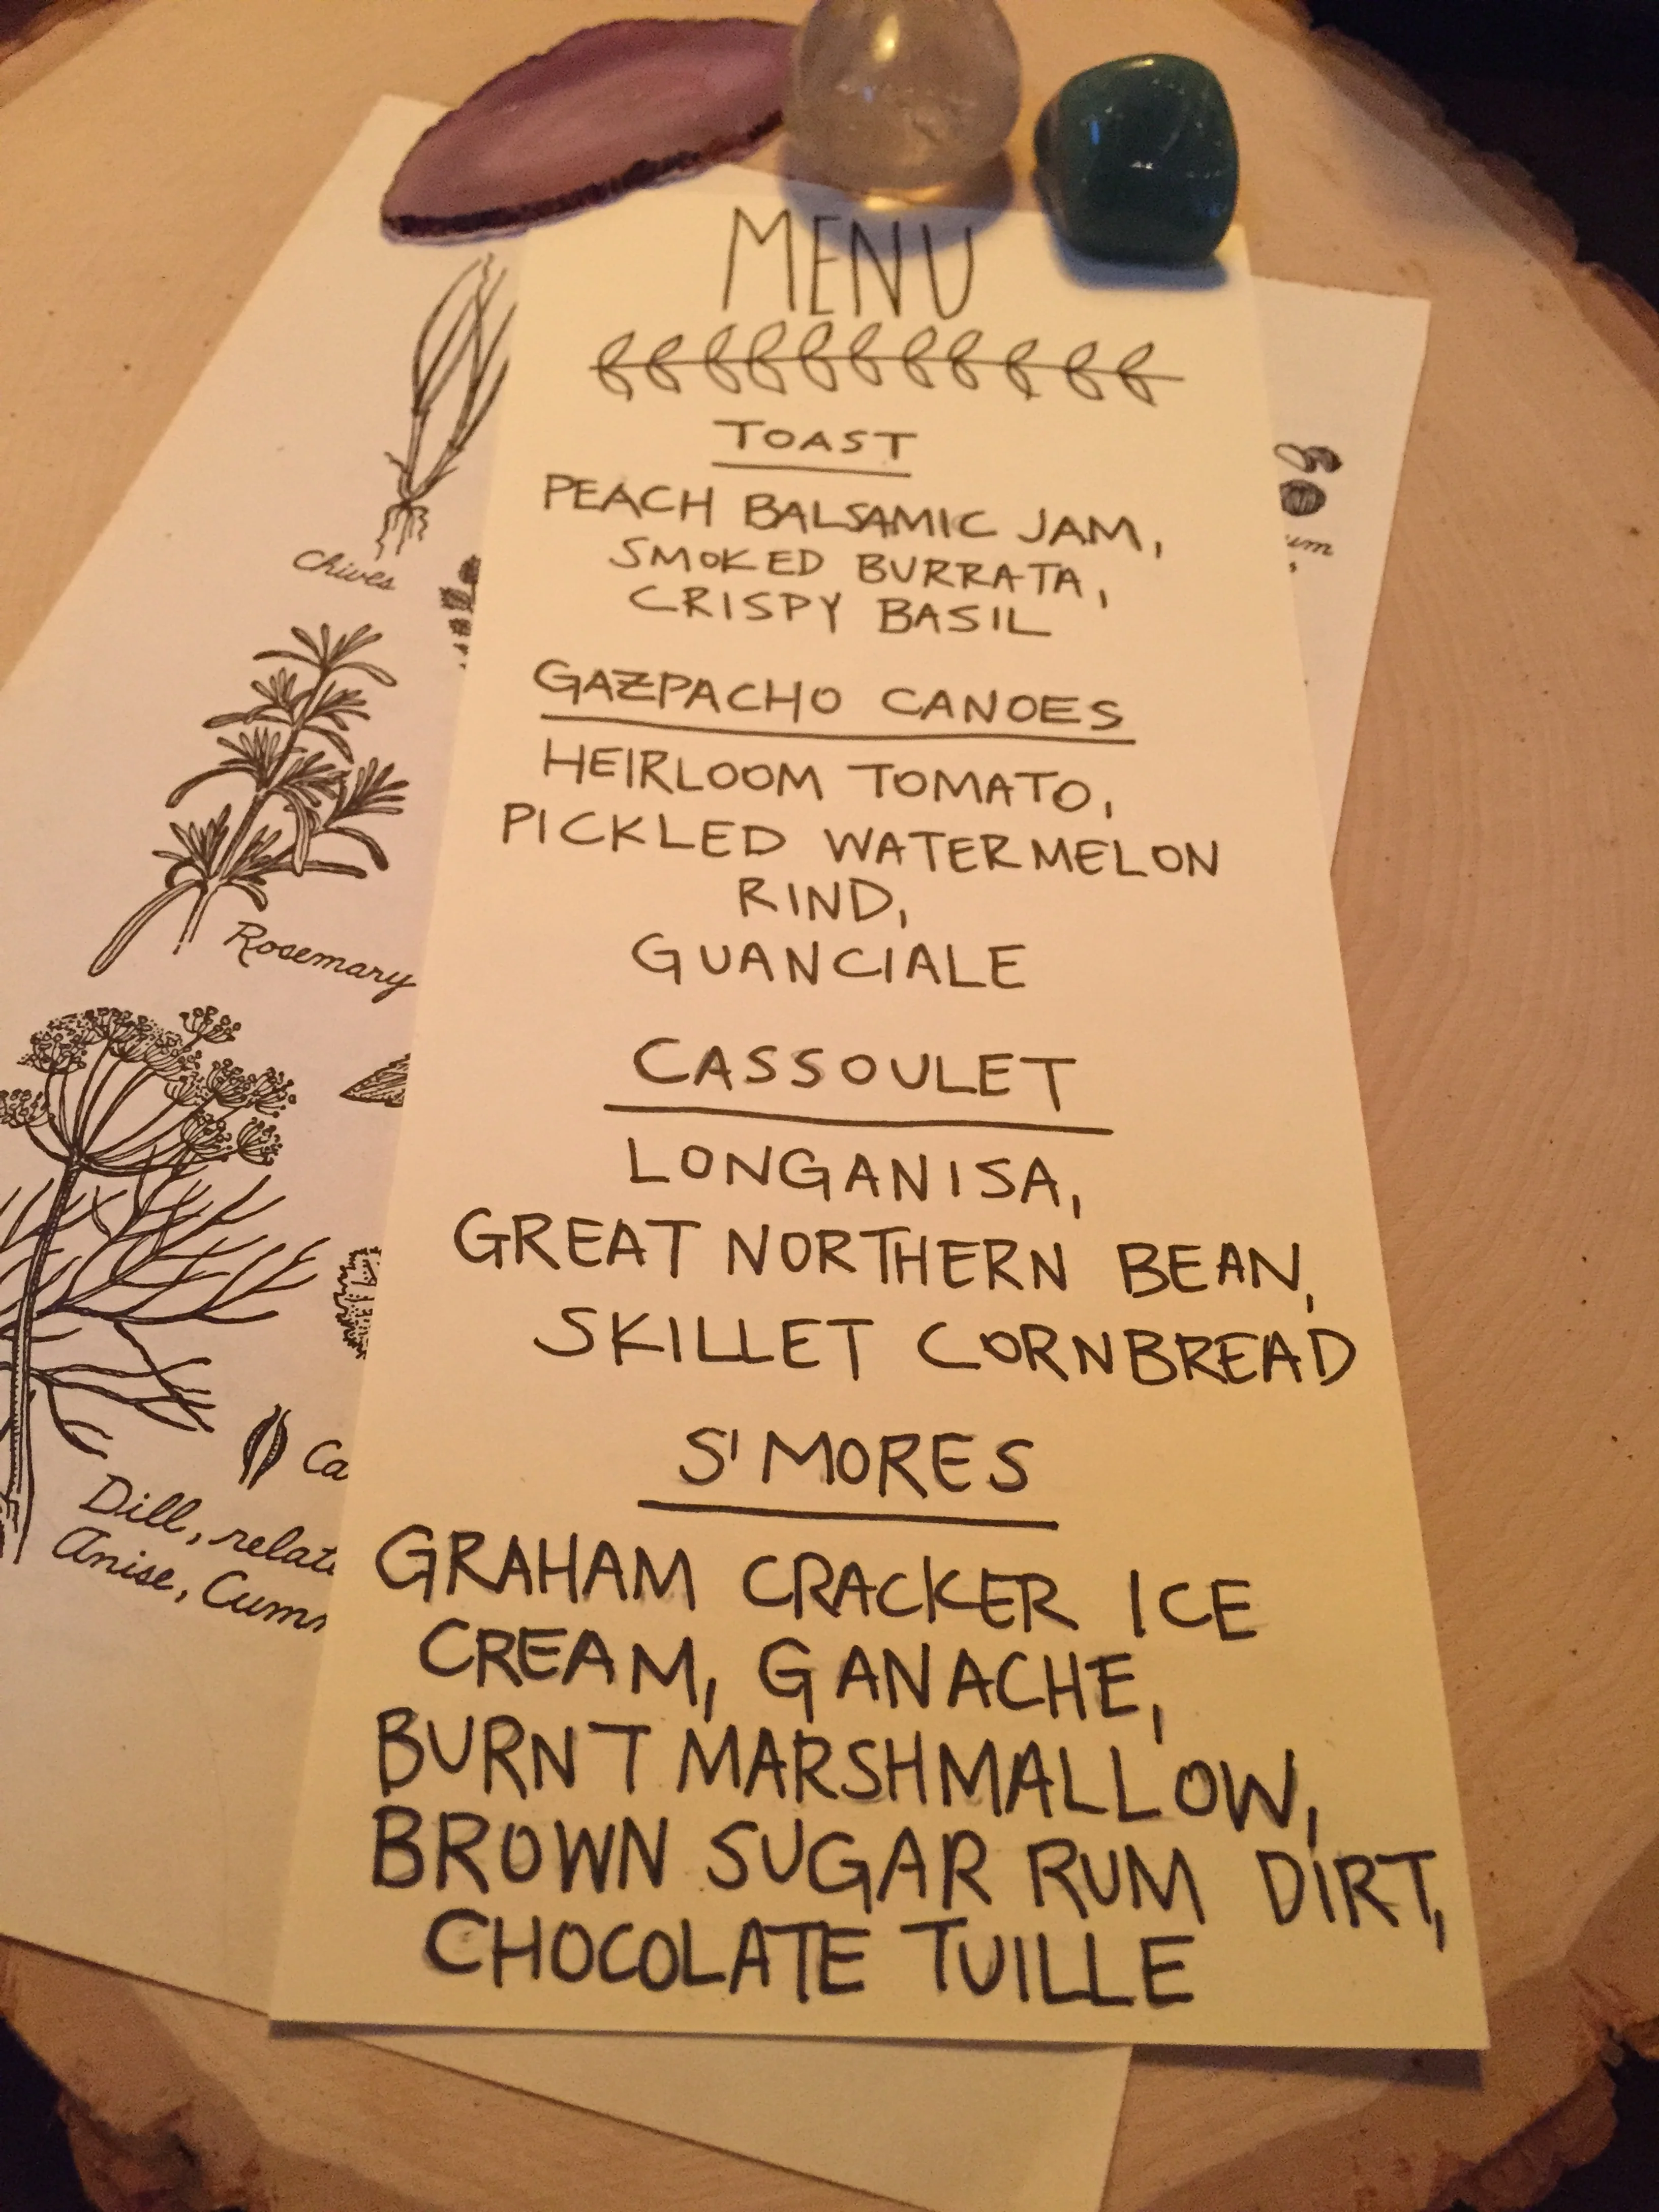 MENU
TOAST
PEACH BALSAMIC JAM,
SMOKED BURRATA,
CRISPY BASIL
GAZPACHO CANOES
HEIRLOOM TOMATO,
PICKLED WATERMELON
RIND,
GUANCIALE
CASSOULET
LONGANISA,
GREAT NORTHERN BEAN,
SKILLET CORNBREAD
S'MORES
GRAHAM CRACKER ICE
CREAM, GANACHE,
BURNT MARSHMALLOW,
BROWN SUGAR RUM DIRT,
CHOCOLATE TUILLE
Chives
Rosemary
Dill,
Anise,